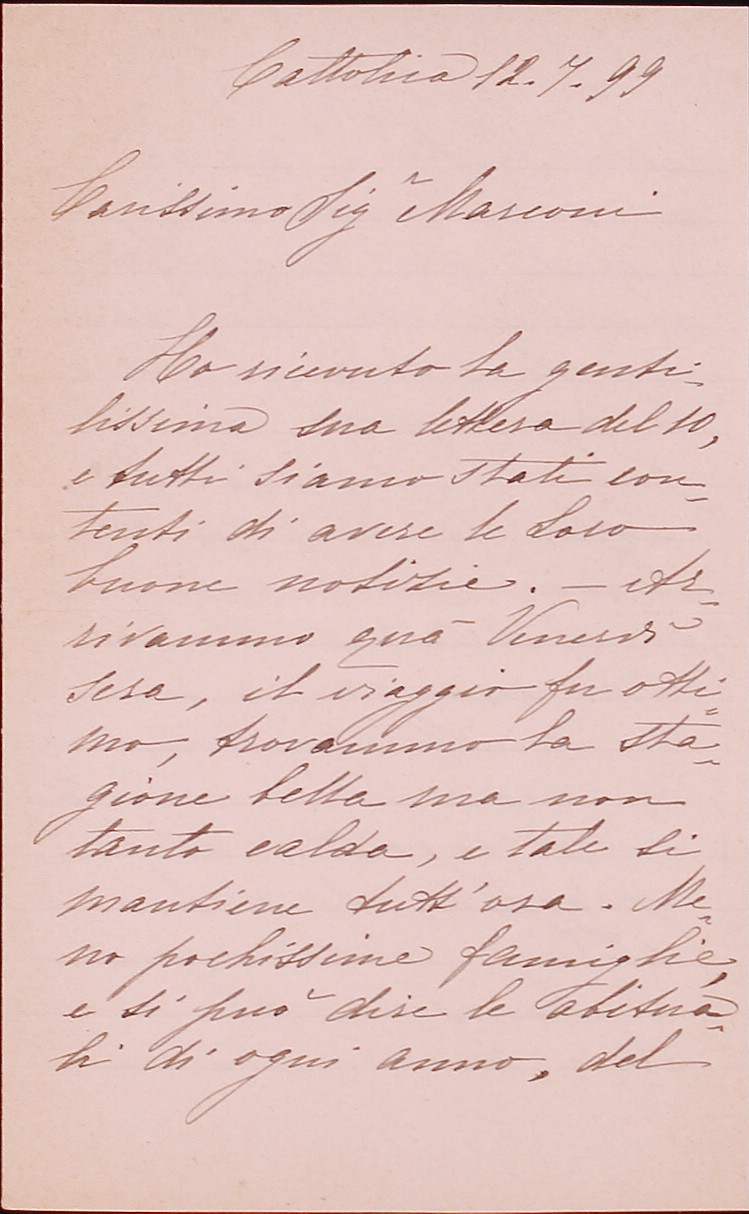 Cattolica 12.7.99
Carissimo Sigr Marconi
Ho ricevuto la genti-
lissima sua lettera del 10,
e tutti siamo stati con-
tenti di avere le Loro
buone notizie. - Ar-
rivammo quà Venerdì
sera, il viaggio fu otti-
mo, trovammo la sta-
gione bella ma non
tanto calda, e tale si
mantiene tutt'ora. Me-
no pochissime famiglie,
e si può dire le abitua-
li di ogni anno, del